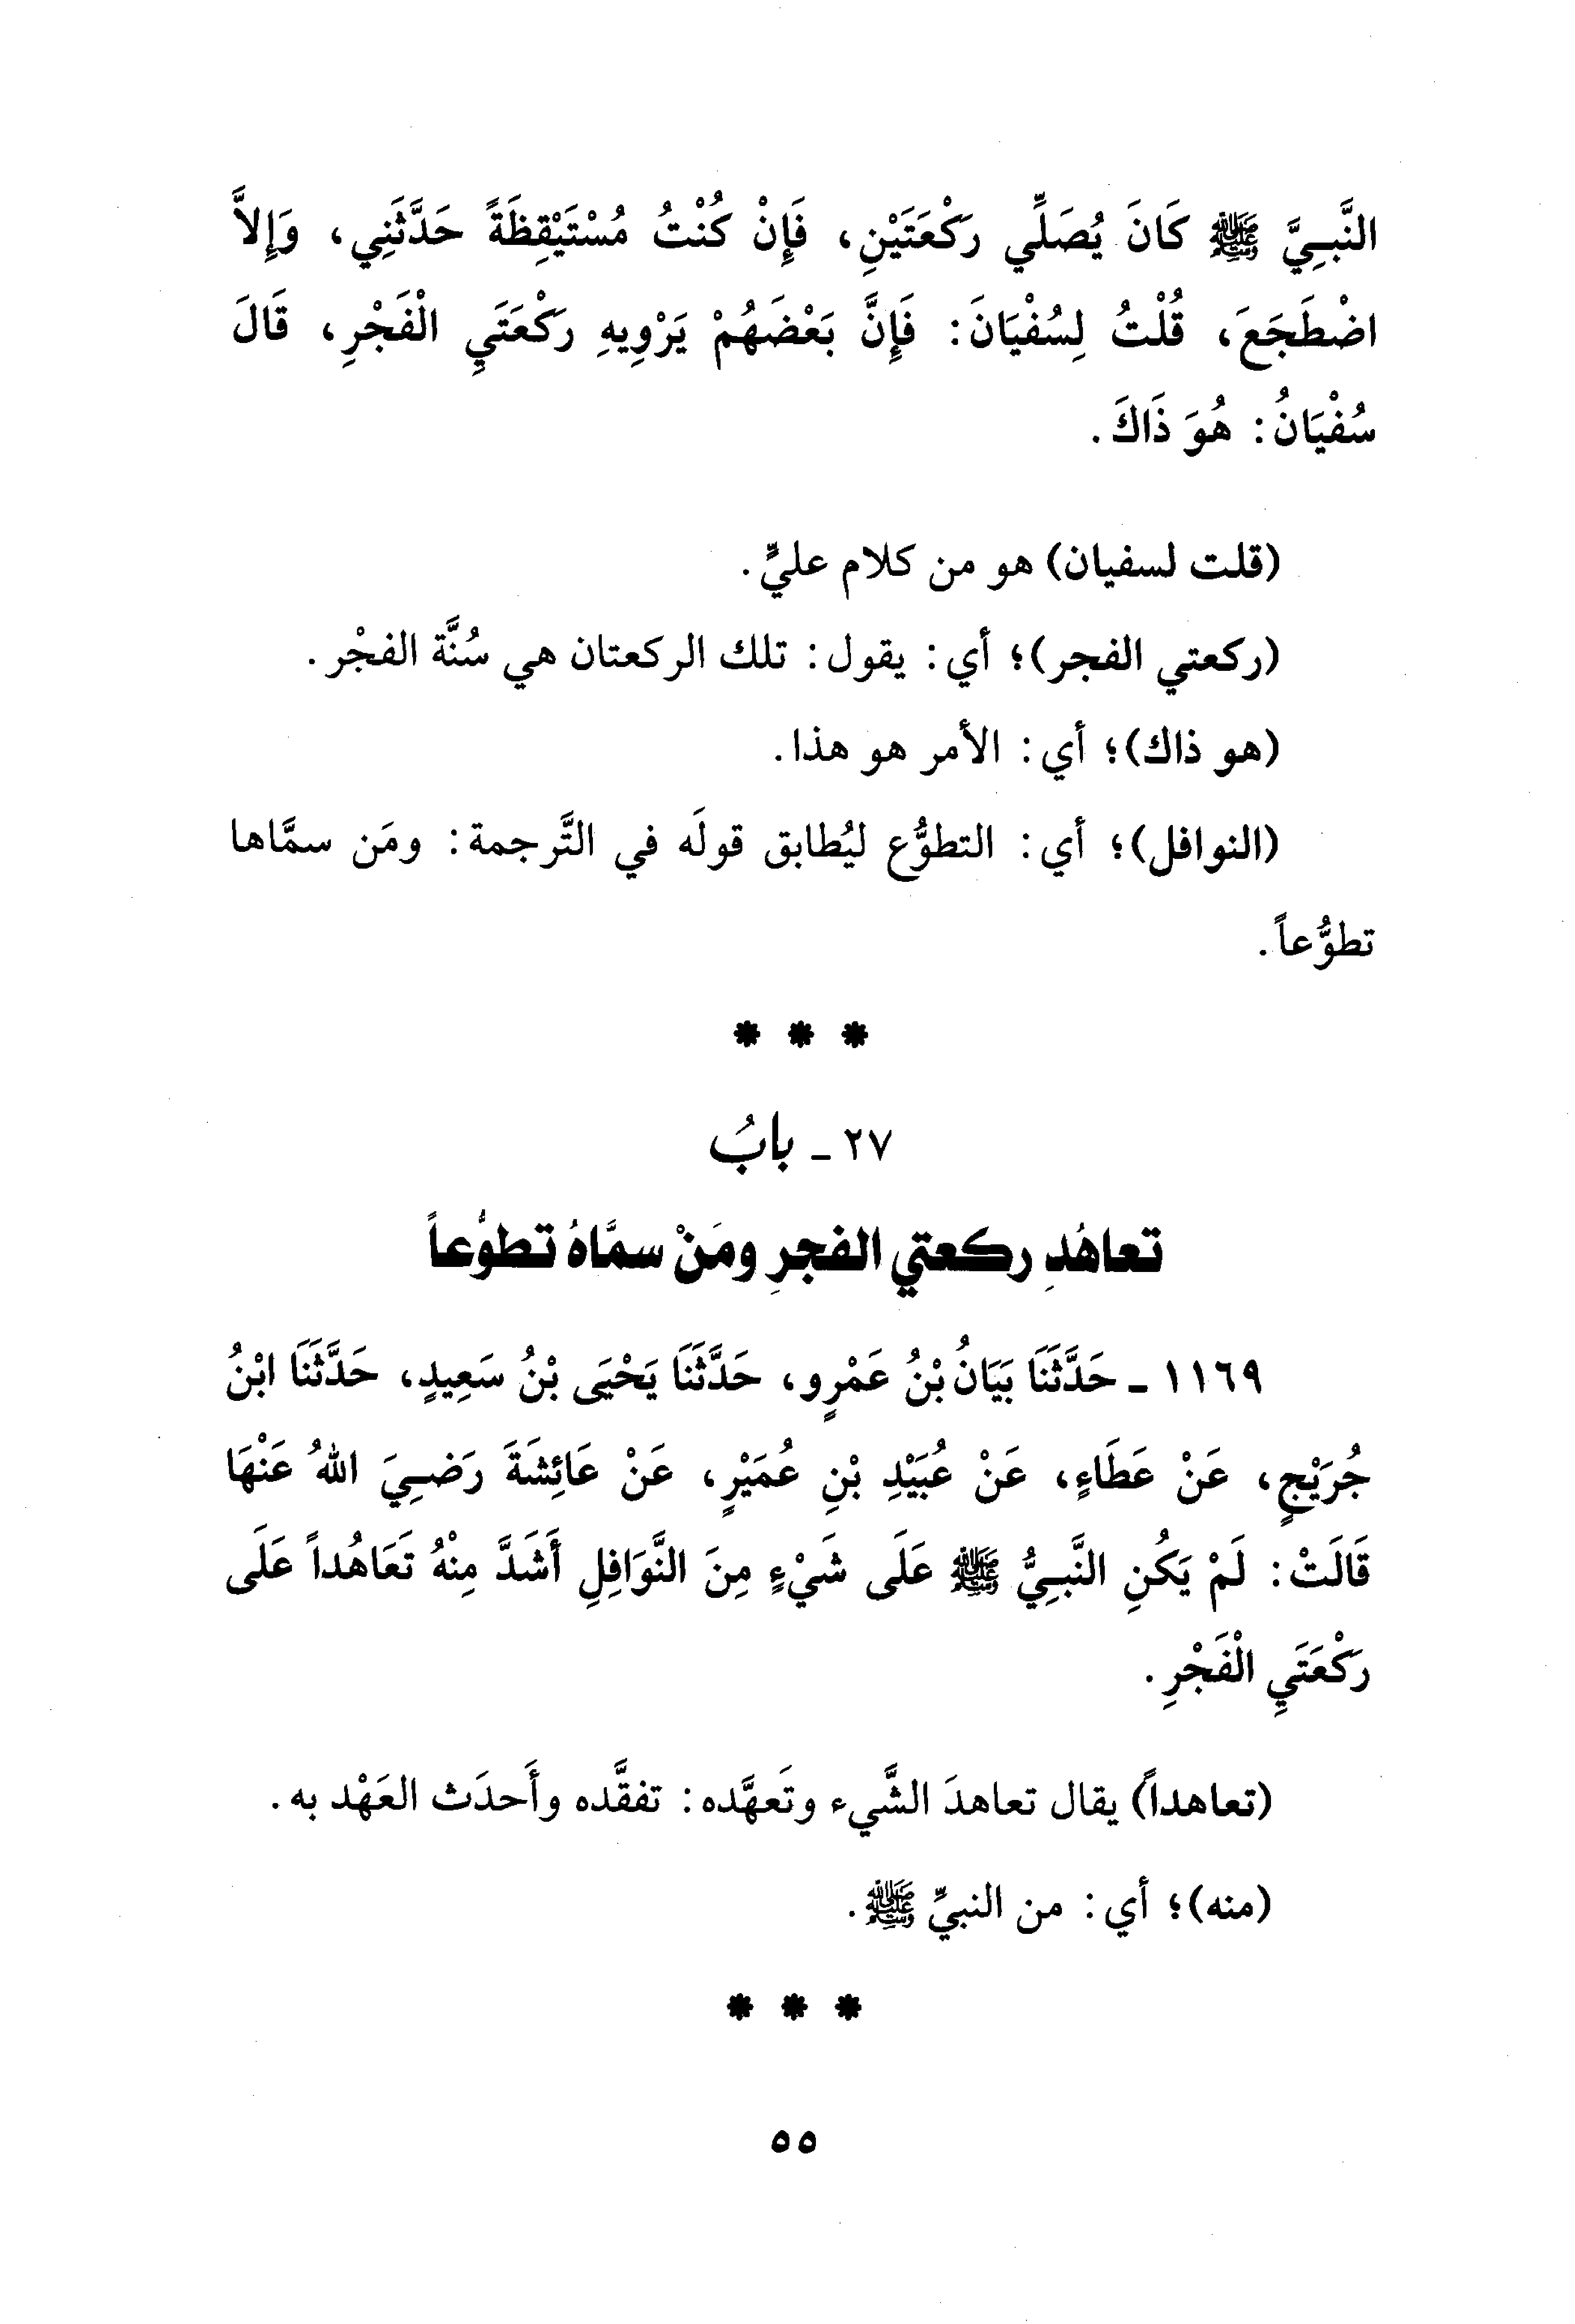 النَّبِيَّ ﷺ كَانَ يُصَلِّي رَكْعَتَيْنِ، فَإِنْ كُنْتُ مُسْتَيْقِظَةً حَدَّثَنِي، وَإِلاَّ
اضْطَجَعَ، قُلْتُ لِسُفْيَانَ: فَإِنَّ بَعْضَهُمْ يَرْوِيهِ رَكْعَتَيِ الْفَجْرِ، قَالَ
سُفْيَانُ: هُوَ ذَاكَ.
(قلت لسفيان) هو من كلام عليٍّ.
(ركعتي الفجر)؛ أي: يقول: تلك الركعتان هي سُنَّة الفجْر.
(هو ذاك)؛ أي: الأمر هو هذا.
(النوافل)؛ أي: التطوُّع ليُطابق قولَه في التَّرجمة: ومَن سمَّاها
تطوُّعاً.
* * *
٢٧ - بابُ
تعاهُدِ ركعتي الفجرِ ومَنْ سمَّاهُ تطوُّعاً
١١٦٩ - حَدَّثَنَا بَيَانُ بْنُ عَمْرٍو، حَدَّثَنَا يَحْيَى بْنُ سَعِيدٍ، حَدَّثَنَا ابْنُ
جُرَيْجٍ، عَنْ عَطَاءٍ، عَنْ عُبَيْدِ بْنِ عُمَيْرٍ، عَنْ عَائِشَةَ رَضِيَ اللهُ عَنْهَا
قَالَتْ: لَمْ يَكُنِ النَّبِيُّ ﷺ عَلَى شَيْءٍ مِنَ النَّوَافِلِ أَشَدَّ مِنْهُ تَعَاهُداً عَلَى
رَكْعَتَيِ الْفَجْرِ.
(تعاهداً) يقال تعاهدَ الشَّيء وتَعهَّده: تفقَّده وأَحدَث العَهْد به.
(منه)؛ أي: من النبيِّ ﷺ.
* * *
٥٥